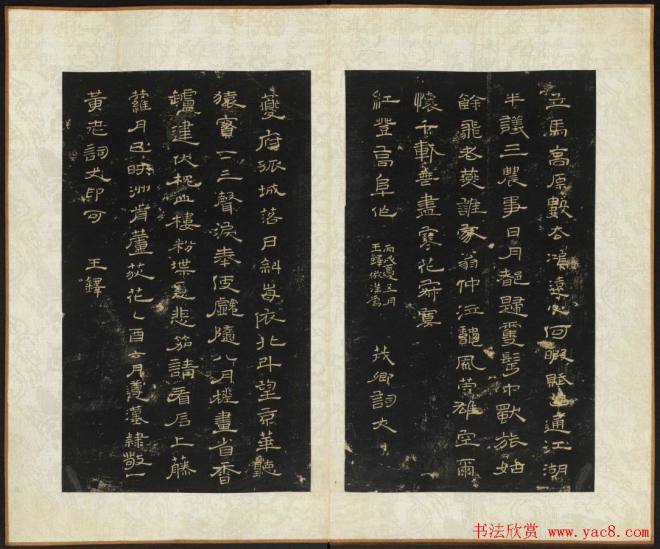 立馬高原數去鴻遠何暇賦通江湖
半議三農事日月都歸雙鬢中戰旅
餘飛老燕誰家翁仲泣風英雄空爾
懷千斬無盡寒花寞
紅 登高阜作
丙戌夏五月
王鐸依漢
我卿詞丈
夔府孤城落日斜每依北斗望京華聽
猿實下三聲淚奉使虛隨八月槎畫省香
爐違伏枕山樓粉堞悲笳請看石上藤
蘿月已映洲前蘆荻花乙酉六月隸敬一
黃老詞丈印可 王鐸
书法欣赏 www.yac8.com